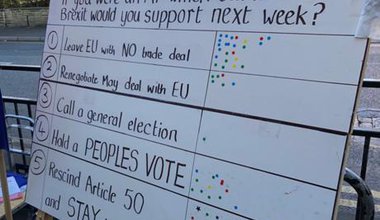 If you were an MP which
Brexit would you support next week?
1 Leave EU with NO trade deal
2 Renegotiate May deal with EU
3 Call a general election
4 Hold a PEOPLES VOTE
5 Rescind Article 50
and STAY